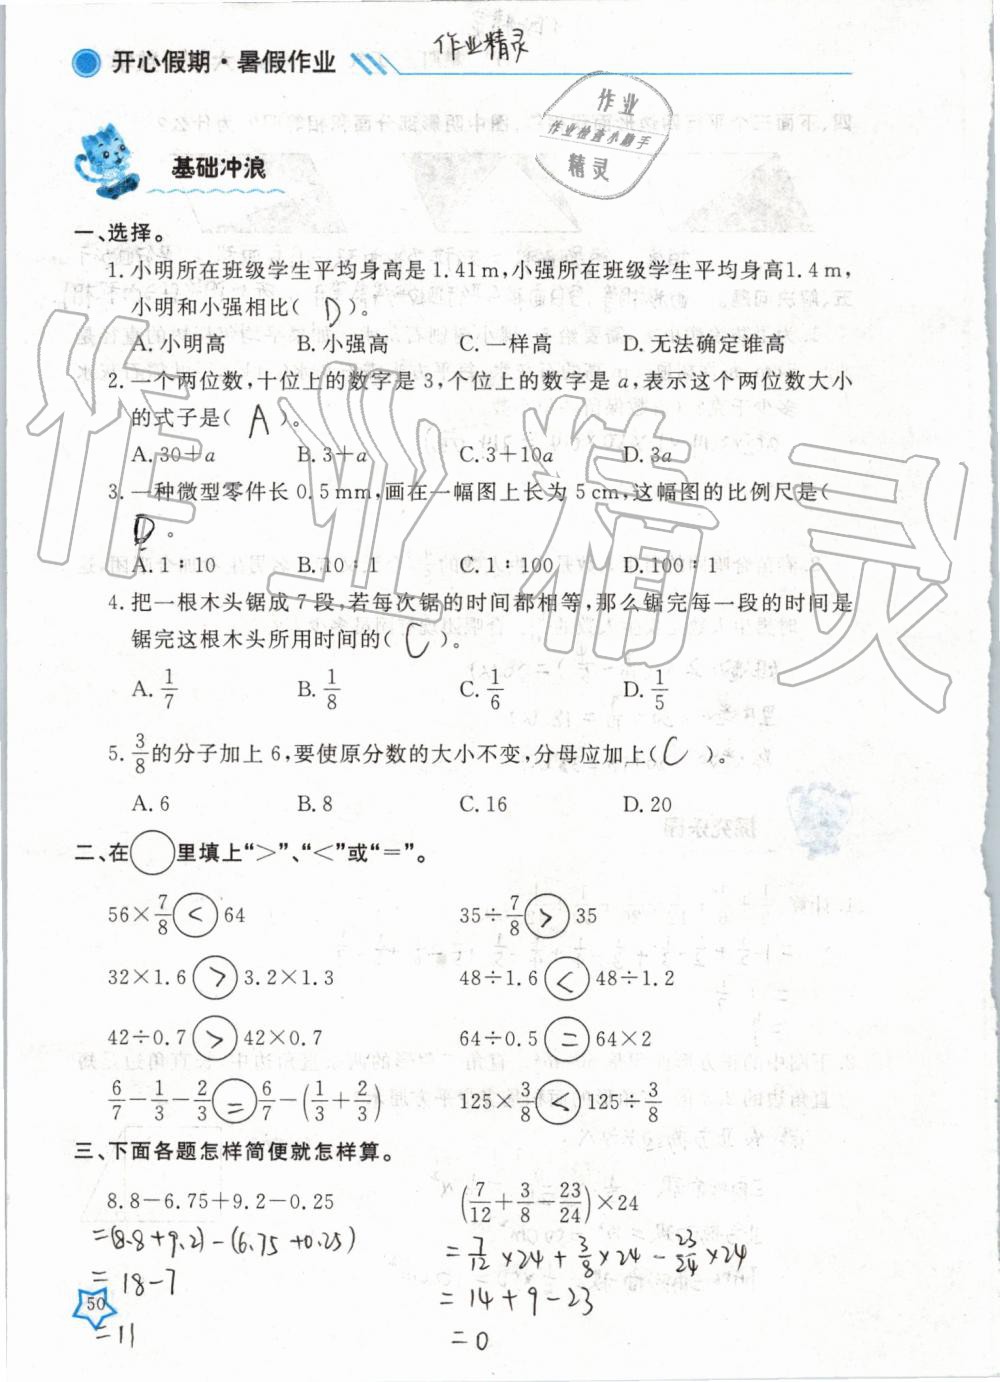 作业精灵
开心假期·暑假作业
作业
作业检查小助手
精灵
基础冲浪
一、选择。
1. 小明所在班级学生平均身高是1.41m,小强所在班级学生平均身高1.4m,
小明和小强相比( D )。
A. 小明高 B. 小强高 C. 一样高 D. 无法确定谁高
2. 一个两位数,十位上的数字是3,个位上的数字是a,表示这个两位数大小
的式子是( A )。
A. 30+a B. 3+a C. 3+10a D. 3a
3. 一种微型零件长0.5mm,画在一幅图上长为5cm,这幅图的比例尺是(
)。
A. 1∶10 B. 10∶1 C. 1∶100 D. 100∶1
4. 把一根木头锯成7段,若每次锯的时间都相等,那么锯完每一段的时间是
锯完这根木头所用时间的( C )。
A. 1/7 B. 1/8 C. 1/6 D. 1/5
5. 3/8的分子加上6,要使原分数的大小不变,分母应加上( C )。
A. 6 B. 8 C. 16 D. 20
二、在○里填上“>”、“<”或“=”。
56×7/8 < 64 35÷7/8 > 35
32×1.6 > 3.2×1.3 48÷1.6 < 48÷1.2
42÷0.7 > 42×0.7 64÷0.5 = 64×2
6/7-1/3-2/3 = 6/7-(1/3+2/3) 125×3/8 < 125÷3/8
三、下面各题怎样简便就怎样算。
8.8-6.75+9.2-0.25 (7/12+3/8-23/24)×24
=(8.8+9.2)-(6.75+0.25) =7/12×24+3/8×24-23/24×24
=18-7 =14+9-23
=11 =0
50
作业精灵